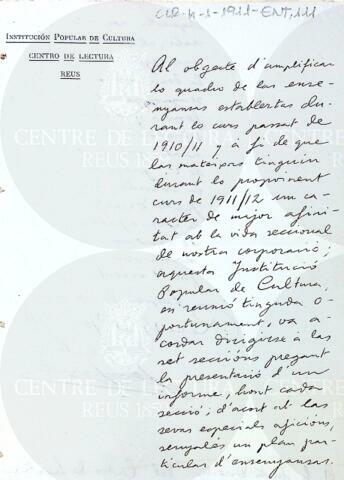 CLR-4-1-1911-ENT,111
INSTITUCIÓN POPULAR DE CULTURA
CENTRO DE LECTURA
REUS
Al objecte d'amplificar
lo quadro de las ense-
nyansas establertas du-
rant lo curs passat de
1910/11, á fi de que
las mateixas tinguin
durant lo proprinent
curs de 1911/12 un ca-
racter de major afini-
tat ab la vida seccional
de nostra corporació;
aquesta Institució
Popular de Cultura,
en reunió tinguda o-
portunament, va a-
cordar dirigirse á las
set seccións pregant
la presentació d'un
informe, hont cada
secció, d'acort ab las
sevas especials aficions,
senyalés un plan par-
ticular d'ensenyansas.
CENTRE DE LECTURA
REUS 1859
CENTRE DE LECTURA
REUS 1859